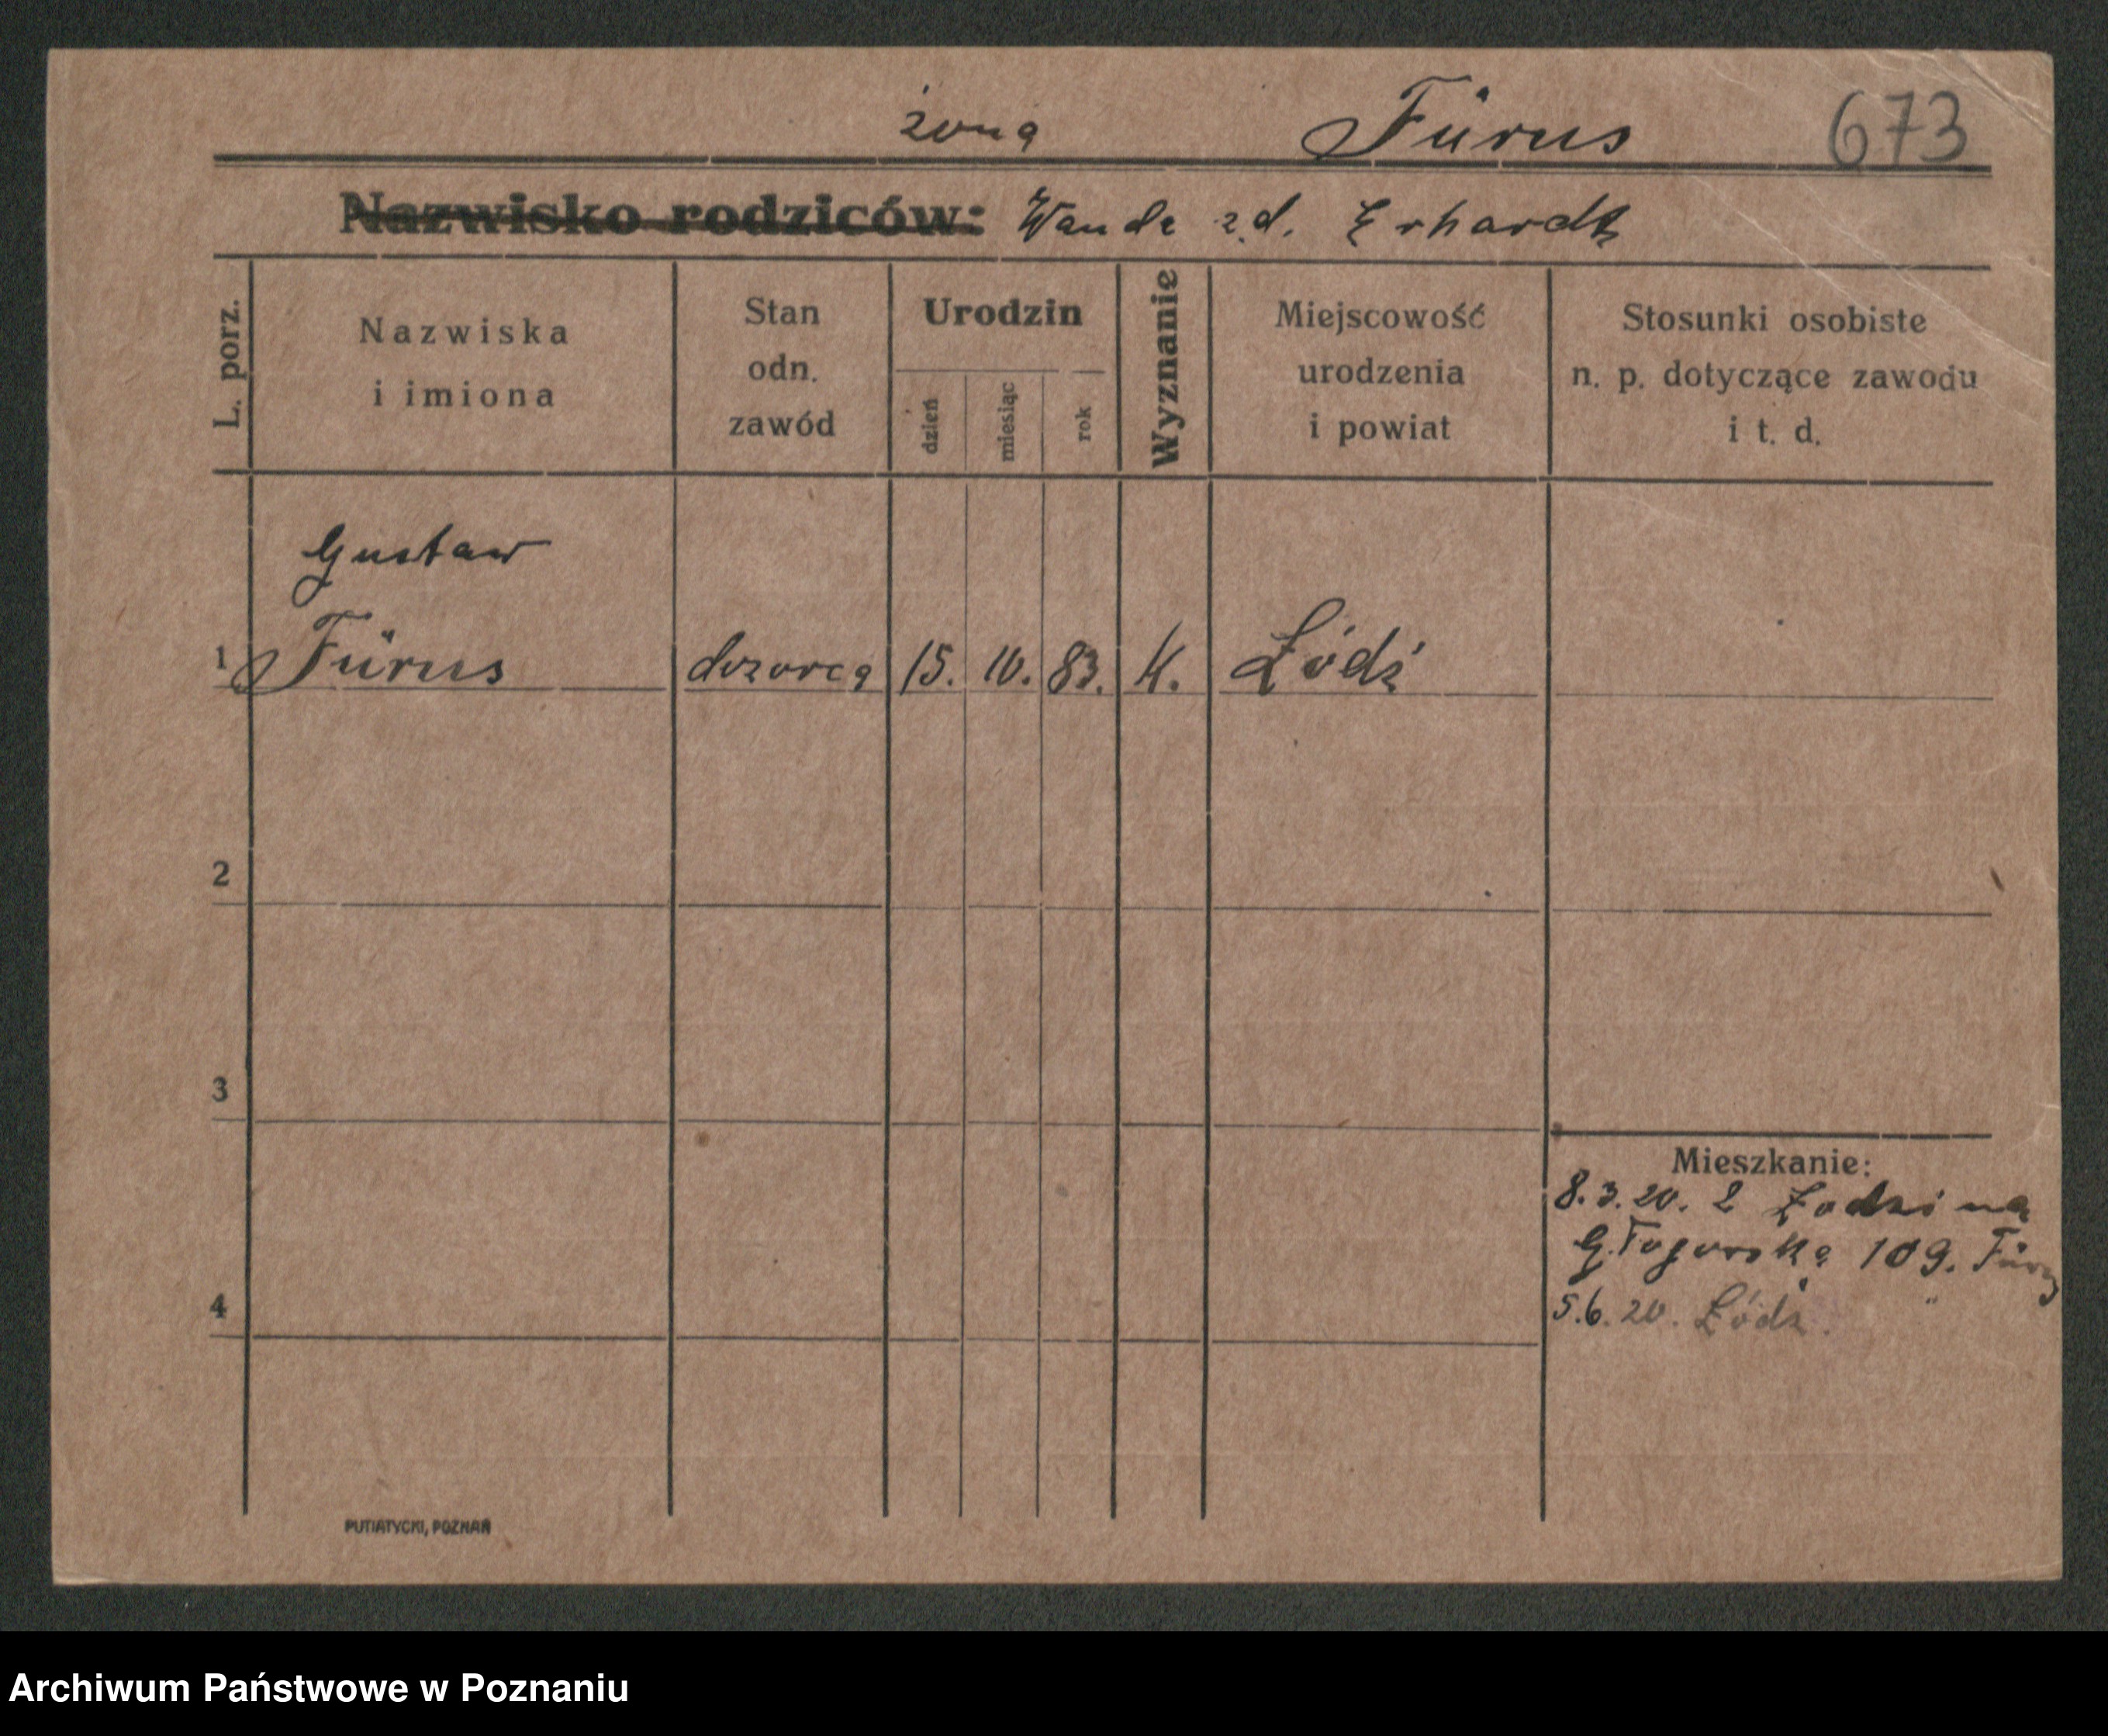 żona Fürus 673
Nazwisko rodziców: Wanda z.d. Erhardt
L. porz.
Nazwiska
i imiona
Stan
odn.
zawód
Urodzin
dzień
miesiąc
rok
Wyznanie
Miejscowość
urodzenia
i powiat
Stosunki osobiste
n. p. dotyczące zawodu
i t. d.
Gustaw
1 Fürus dozorca 15. 10. 83. K. Łódź
2
3
Mieszkanie:
8.3.20. z Łodzi na
G. 109.
4
5.6.20. Łódź.
PUTIATYCKI, POZNAŃ
Archiwum Państwowe w Poznaniu